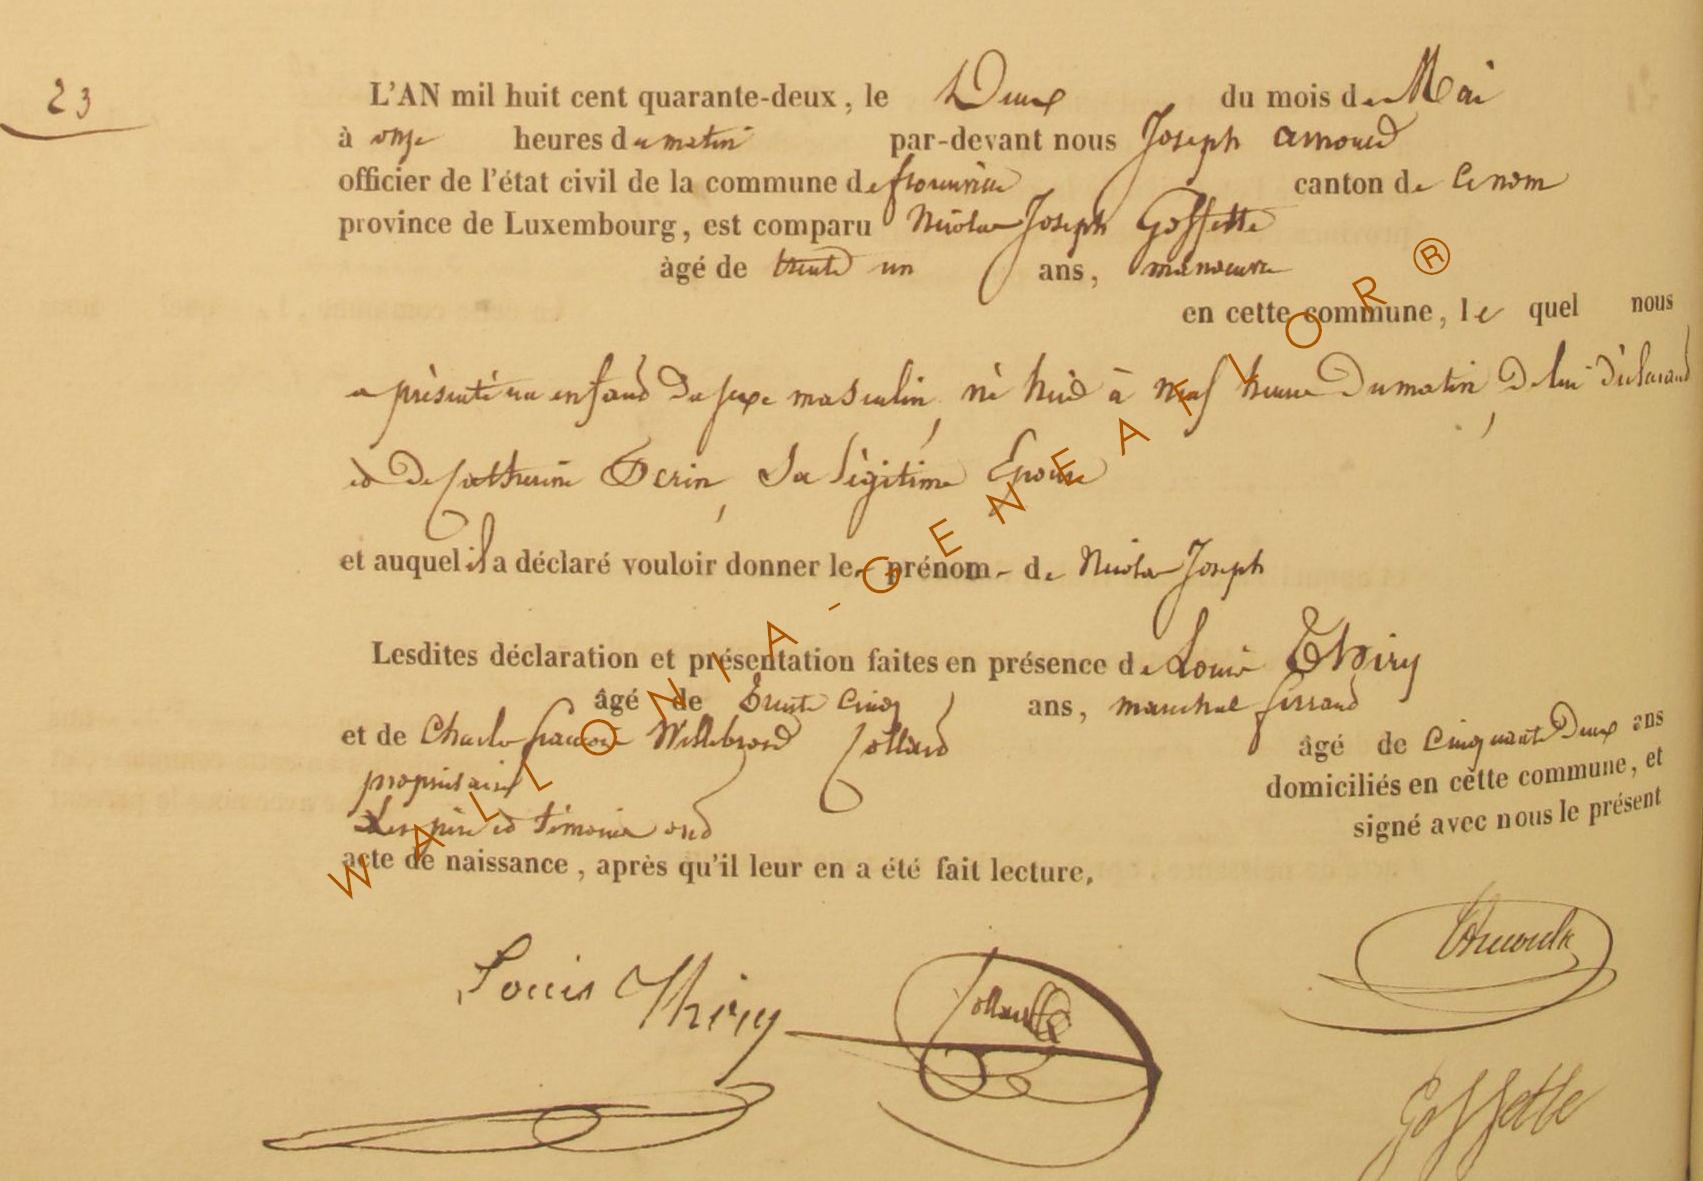 23
L'AN mil huit cent quarante-deux, le Deux du mois de Mai
à onze heures du matin par-devant nous Joseph Arnould
officier de l'état civil de la commune de canton de ce nom
province de Luxembourg, est comparu Nicolas Joseph Goffette
âgé de trente un ans, manœuvre
en cette commune, le quel nous
a présenté un enfant du sexe masculin, né hui à neuf heures du matin, de lui déclarant
et de Catherine Derin, Sa légitime Epouse
et auquel il a déclaré vouloir donner le prénom de Nicolas Joseph
Lesdites déclaration et présentation faites en présence de Louis Thiry
âgé de Trente cinq ans, marechal ferrant
et de Charles François Willebrord Collard âgé de cinquante Deux ans
propriétaire domiciliés en cette commune, et
Les père et témoins ont signé avec nous le présent
acte de naissance, après qu'il leur en a été fait lecture.
Louis Thiry
Collard
Arnould
Goffette
WALLONIA-GENEAFLOR®